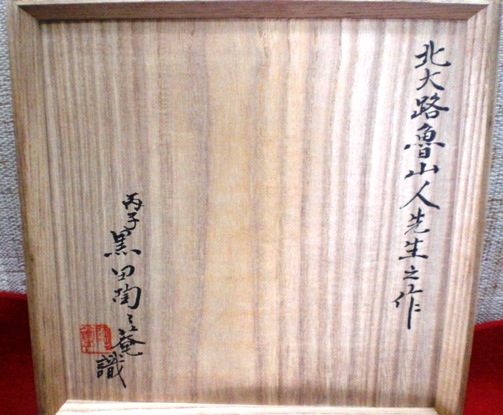 北大路魯山人先生之作
丙子 黒田陶々菴識